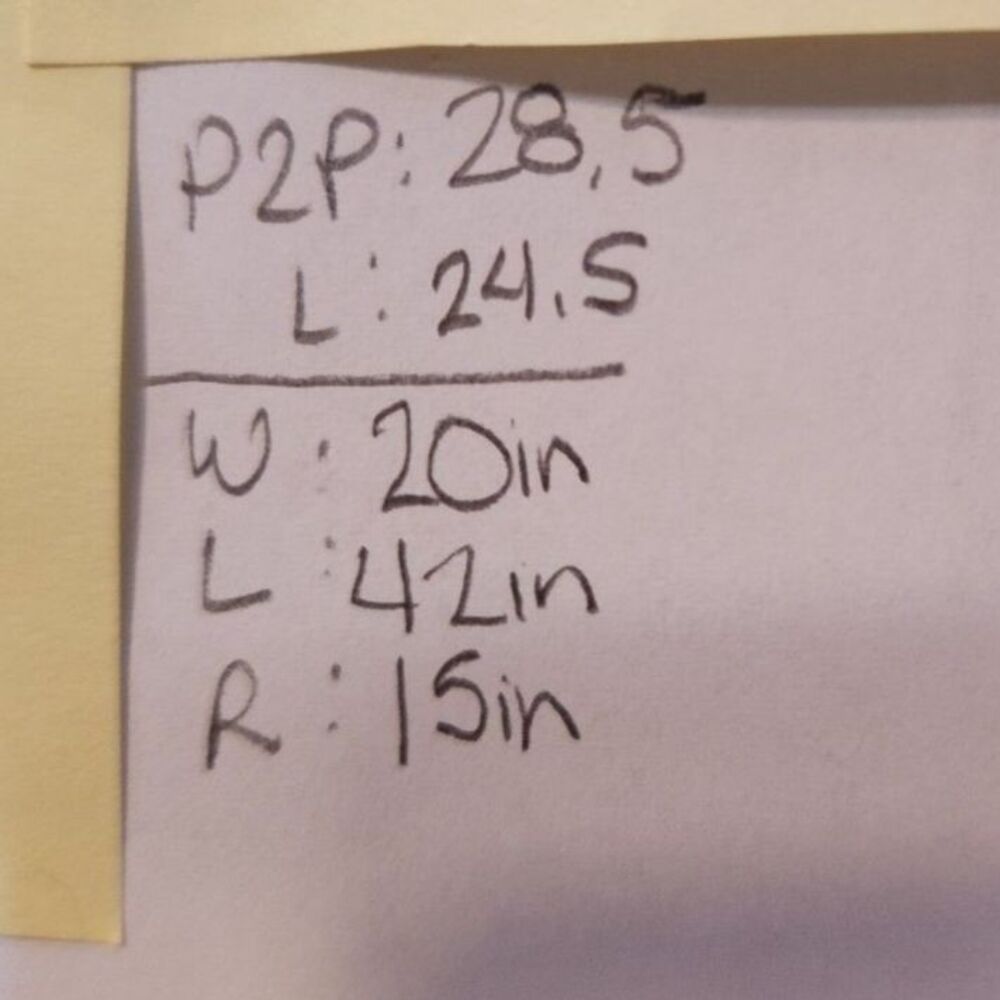 P2P: 28.5
L: 24.5
W: 20in
L: 42in
R: 15in